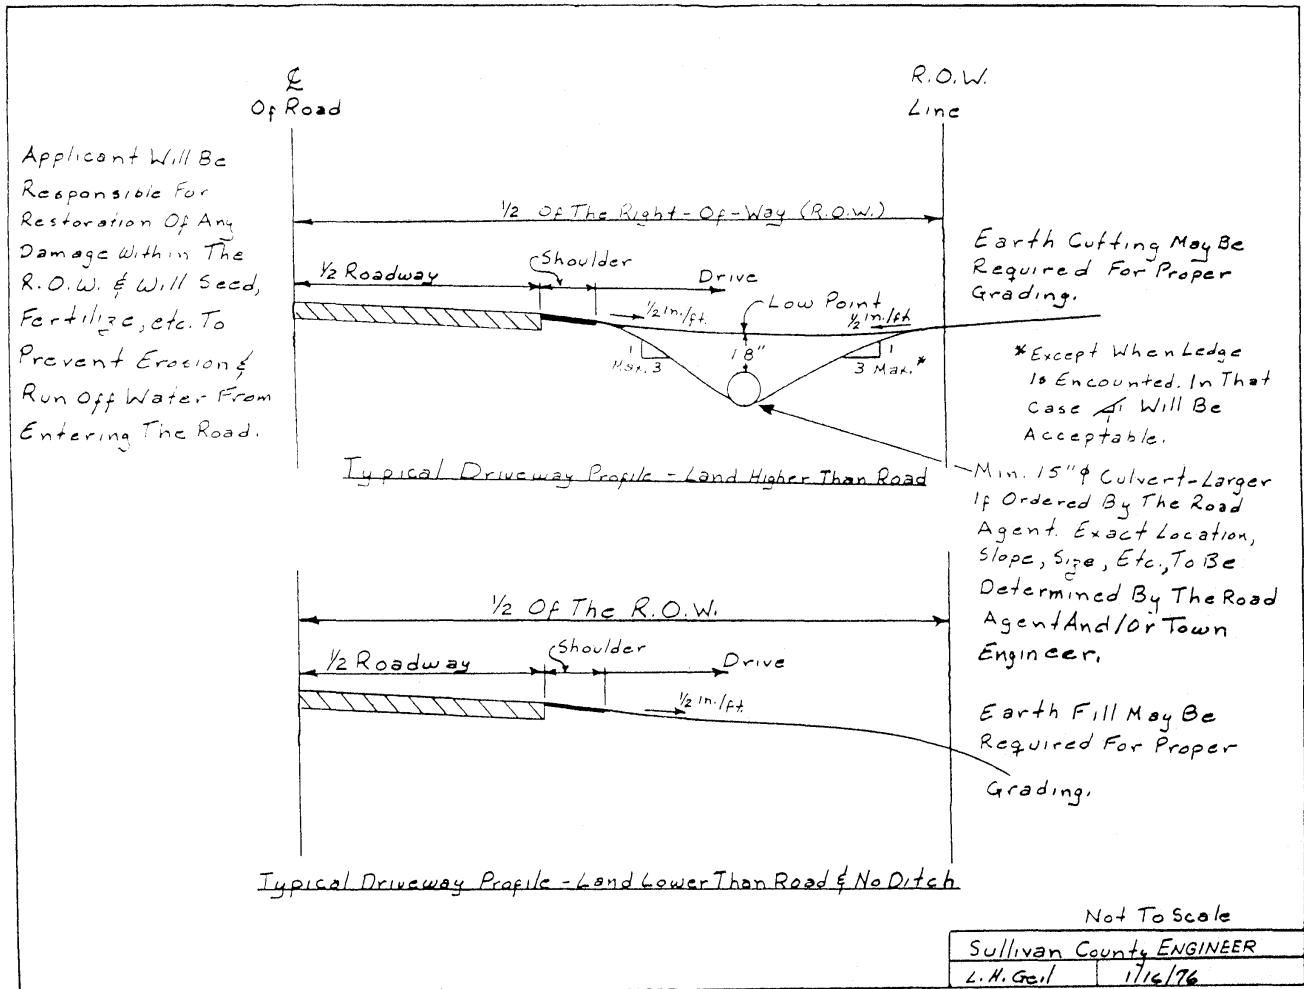 ℄
Of Road
R.O.W.
Line
Applicant Will Be
Responsible For
Restoration Of Any
Damage Within The
R.O.W. & Will Seed,
Fertilize, etc. To
Prevent Erosion &
Run Off Water From
Entering The Road.
1/2 Of The Right-Of-Way (R.O.W.)
1/2 Roadway
Shoulder
Drive
1/2 in./ft.
Low Point
1/2 in./ft.
18"
1
Max. 3
1
3 Max.*
Earth Cutting May Be
Required For Proper
Grading.
*Except When Ledge
Is Encounted. In That
Case 1 Will Be
Acceptable.
Typical Driveway Profile - Land Higher Than Road
Min. 15" ϕ Culvert-Larger
If Ordered By The Road
Agent. Exact Location,
Slope, Size, Etc., To Be
Determined By The Road
Agent And/Or Town
Engineer.
1/2 Of The R.O.W.
1/2 Roadway
Shoulder
Drive
1/2 in./ft.
Earth Fill May Be
Required For Proper
Grading.
Typical Driveway Profile - Land Lower Than Road & No Ditch
Not To Scale
Sullivan County ENGINEER
L. H. Geil 1/16/76